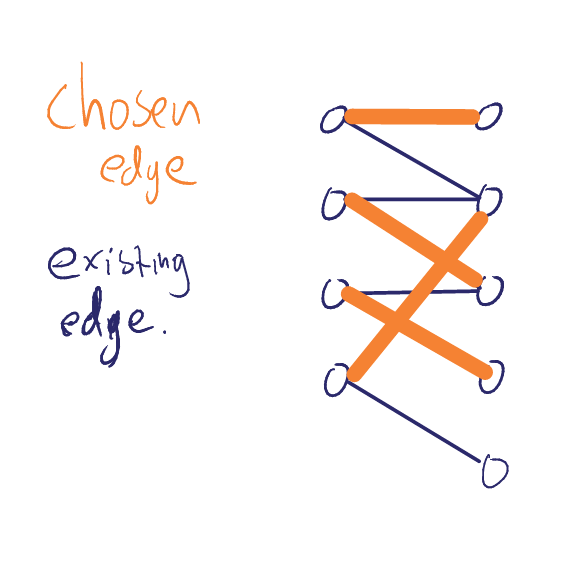 Chosen
edge
existing
edge.